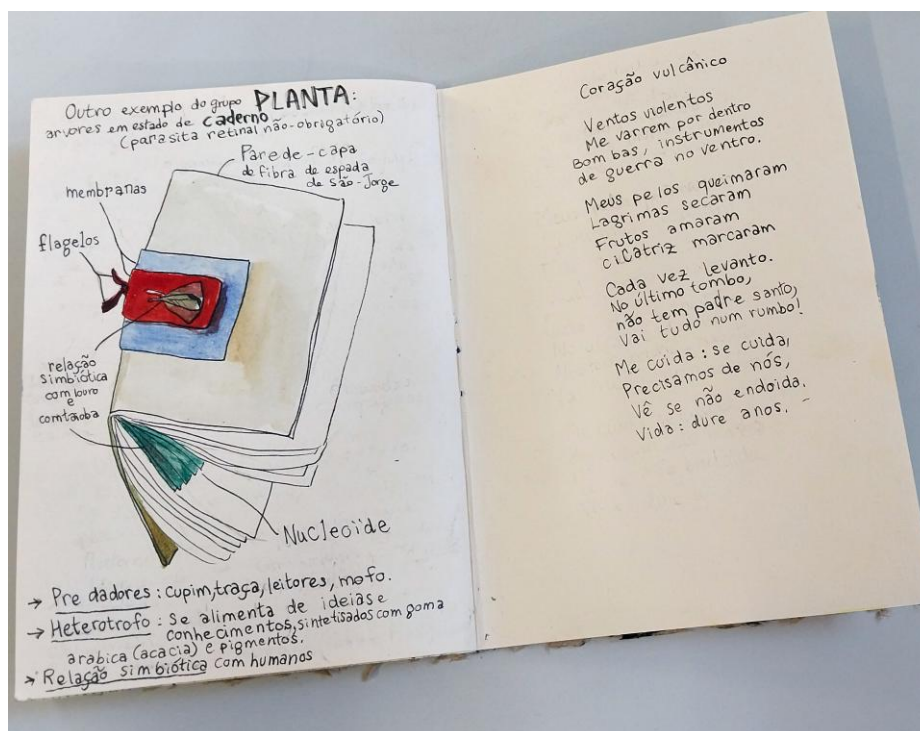 Outro exemplo do grupo PLANTA:
arvores em estado de caderno
(parasita retinal não-obrigatório)
Parede-capa
de fibra de espada
de São-Jorge
membranas
flagelos
relação
simbiótica
com louro
e
comtaboa
Nucleoïde
→ Predadores: cupim, traça, leitores, mofo.
→ Heterotrofo: Se alimenta de ideias e
conhecimentos, sintetisados com goma
arabica (acacia) e pigmentos.
→ Relação simbiótica com humanos
Coração vulcânico
Ventos violentos
Me varrem por dentro
Bombas, instrumentos
de guerra no ventro.
Meus pelos queimaram
Lagrimas secaram
Frutos amaram
ciCatriz marcaram
Cada vez levanto.
No último tombo,
não tem padre santo,
Vai tudo num rumbo!
Me cuida: se cuida,
Precisamos de nós,
Vê se não endoida.
Vida: dure anos.